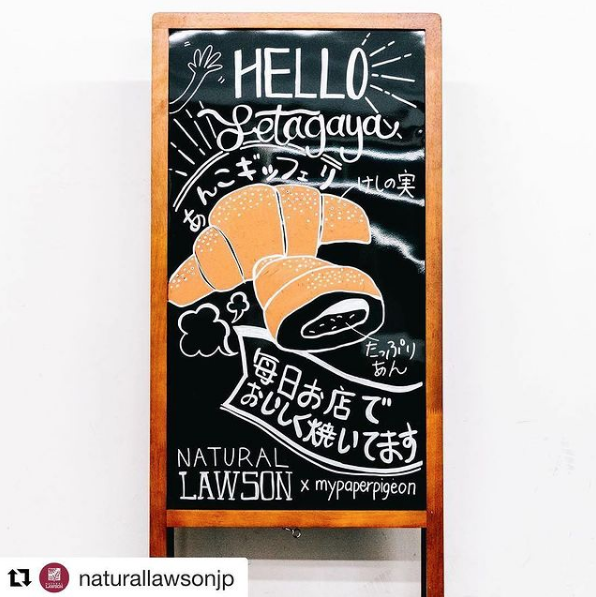 HELLO
Setagaya
あんこギッフェリ
けしの実
たっぷり
あん
毎日お店で
おいしく焼いてます
NATURAL
LAWSON x mypaperpigeon
naturallawsonjp